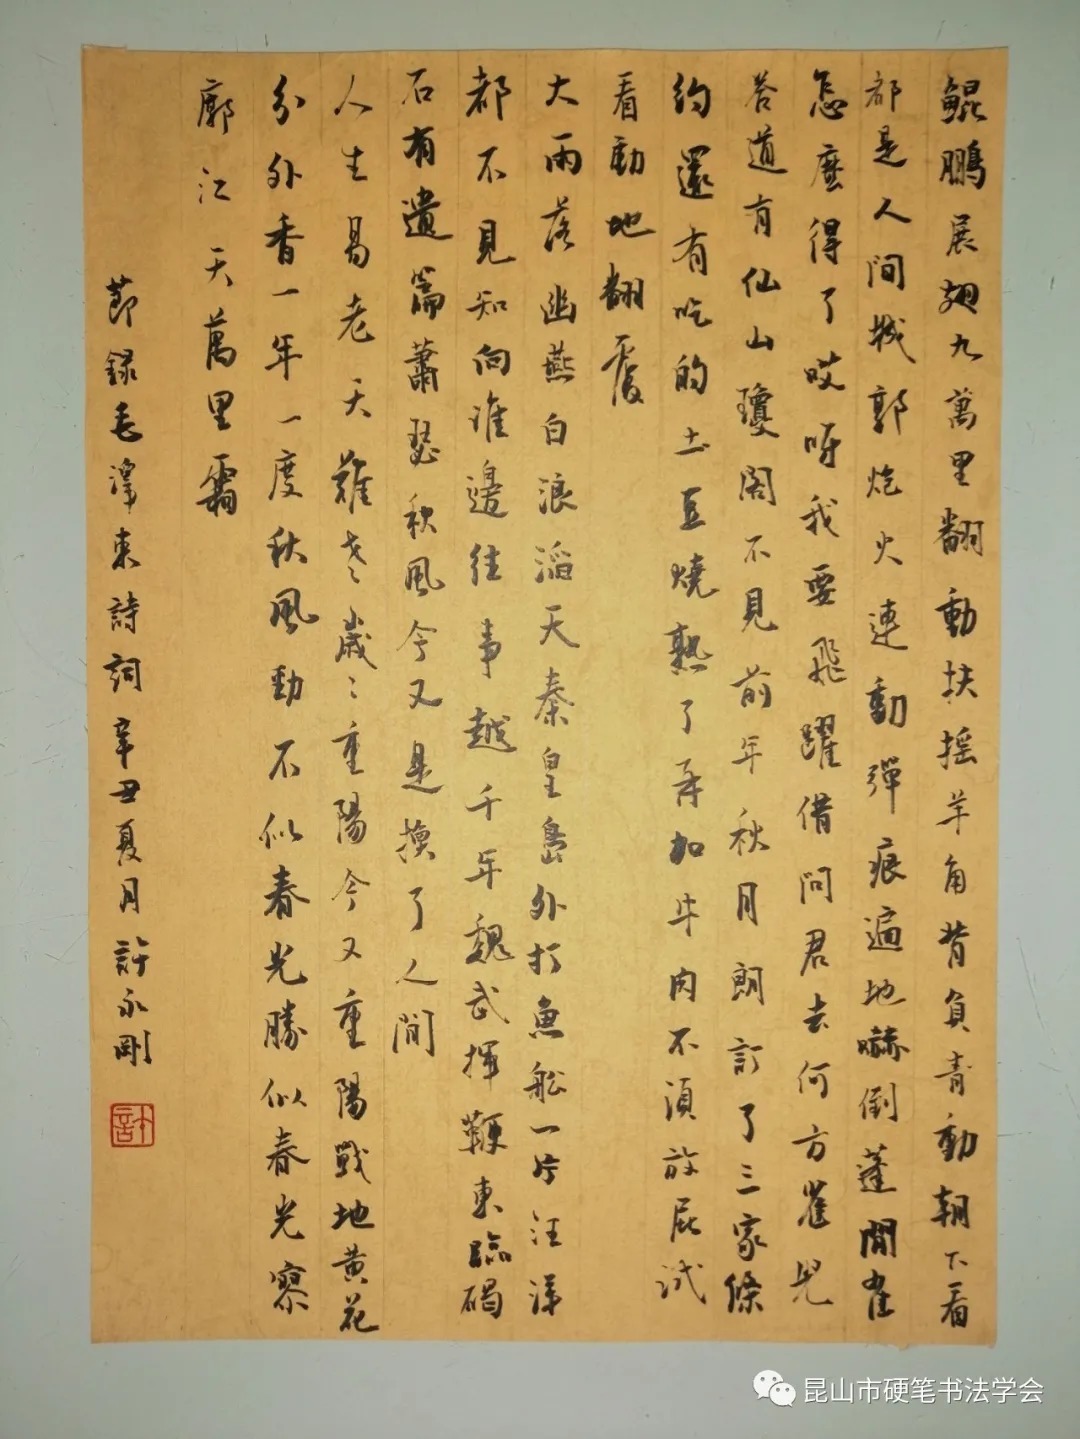 鯤鵬展翅九萬里翻動扶摇羊角背負青動朝下看
都是人間城郭炮火連動彈痕遍地嚇倒蓬間雀
怎麽得了哎呀我要飛躍借問君去何方雀兒
答道有仙山瓊閣不見前年秋月朗訂了三家條
約還有吃的土豆燒熟了再加牛肉不須放屁試
看動地翻覆
大雨落幽燕白浪滔天秦皇島外打魚船一片汪洋
都不見知向誰邊往事越千年魏武揮鞭東臨碣
石有遺篇蕭瑟秋風今又是换了人間
人生易老天難老歲々重陽今又重陽戰地黄花
分外香一年一度秋風動不似春光勝似春光寥
廓江天萬里霜
節録毛澤東詩詞辛丑夏月許永剛
許
昆山市硬笔书法学会